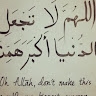 اللهم لا تجعل
الدنيا أكبر همنا
Oh Allah, don't make this